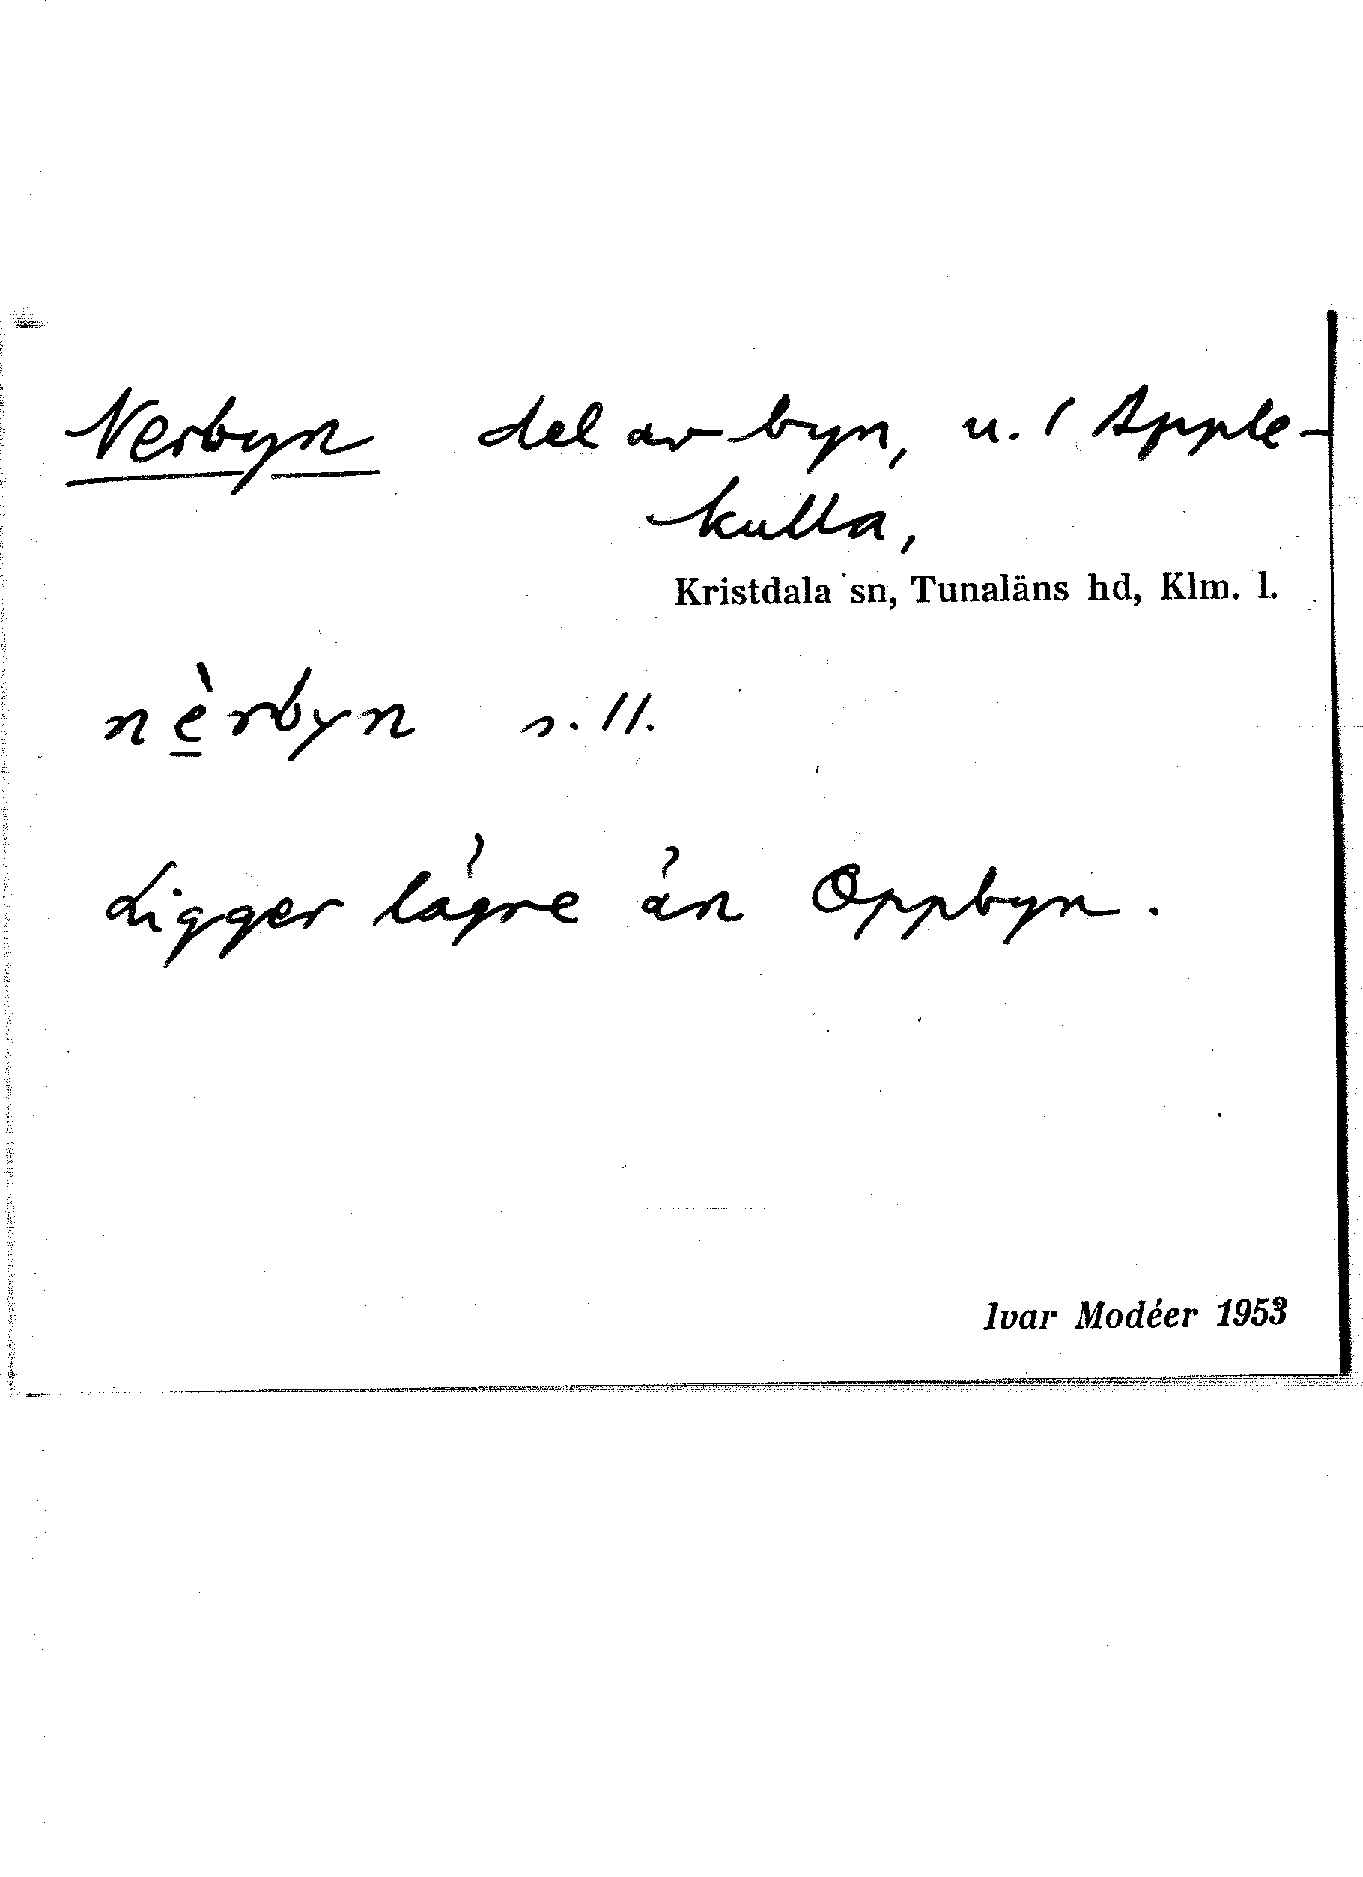 Nerbyn del av byn, u. 1 Apple-
kulla,
Kristdala sn, Tunaläns hd, Klm. l.
nèrbyn s. 11.
Ligger lägre än Oppbyn.
Ivar Modéer 1953